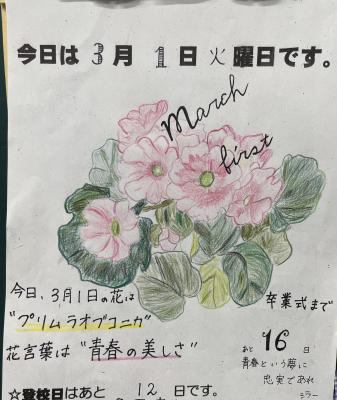 今日は3月1日火曜日です。
March
first
今日、3月1日の花は
"プリムラオブコニカ"
花言葉は"青春の美しさ"
卒業式まで
あと16日
青春という夢に
忠実であれ
シラー
☆登校日はあと12日です。